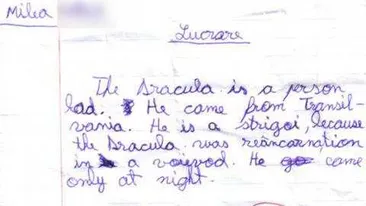 Milea
Lucrare
The Dracula is a person
bad. He came from Transil-
vania. He is a strigoi, because
the Dracula was reäncarnation
in a voievod. He came
only at night.